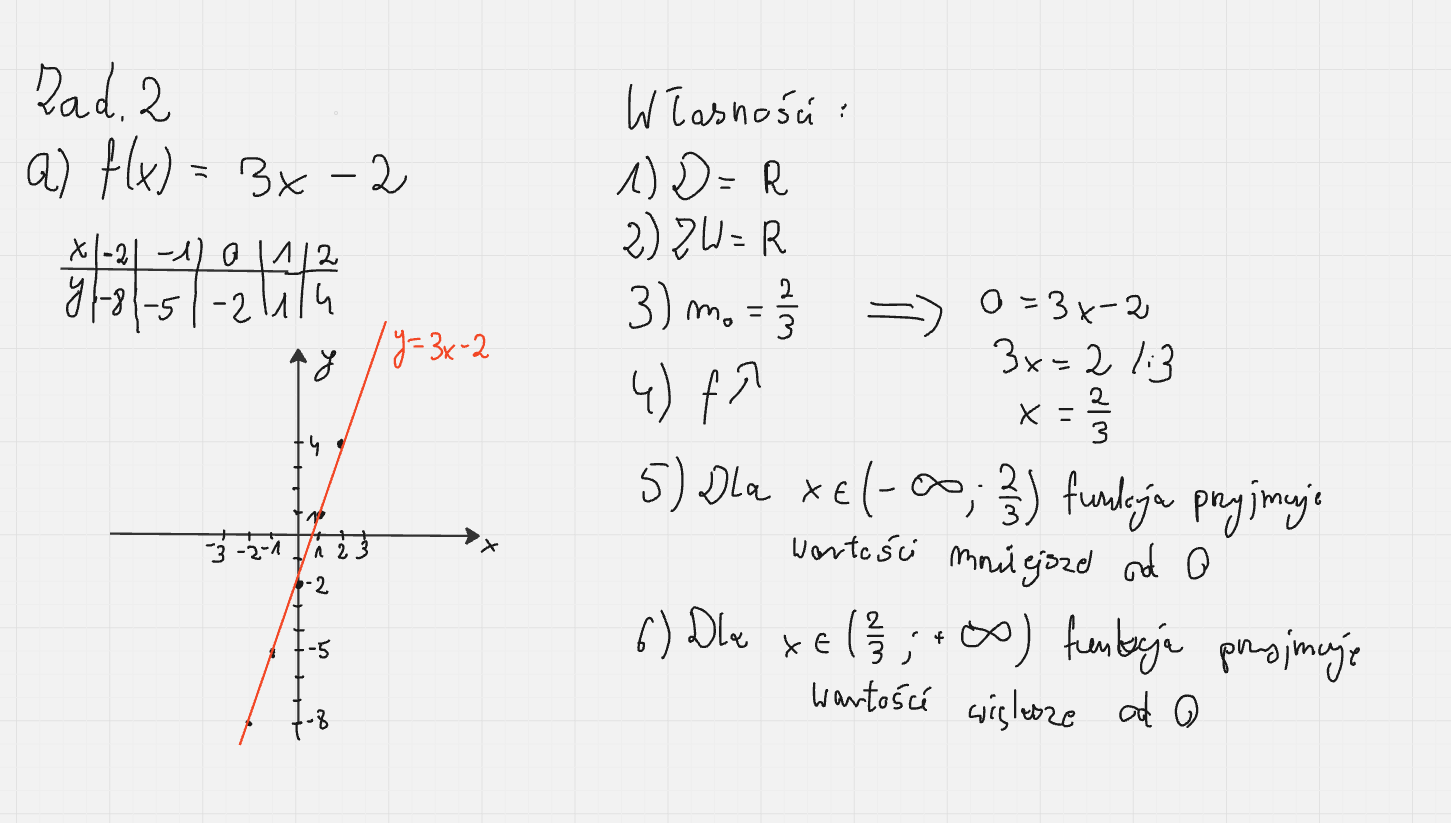 Zad. 2
a) f(x) = 3x - 2
x | -2 | -1 | 0 | 1 | 2
y | -8 | -5 | -2 | 1 | 4
y=3x-2
y
4
1
-3 -2 -1 1 2 3 x
-2
-5
-8
Własności:
1) D = R
2) ZW = R
3) m₀ = 2/3 ⟹ 0 = 3x - 2
3x = 2 /:3
x = 2/3
4) f ↗
5) Dla x ∈ (-∞; 2/3) funkcja przyjmuje
wartości mniejsze od 0
6) Dla x ∈ (2/3; +∞) funkcja przyjmuje
wartości większe od 0